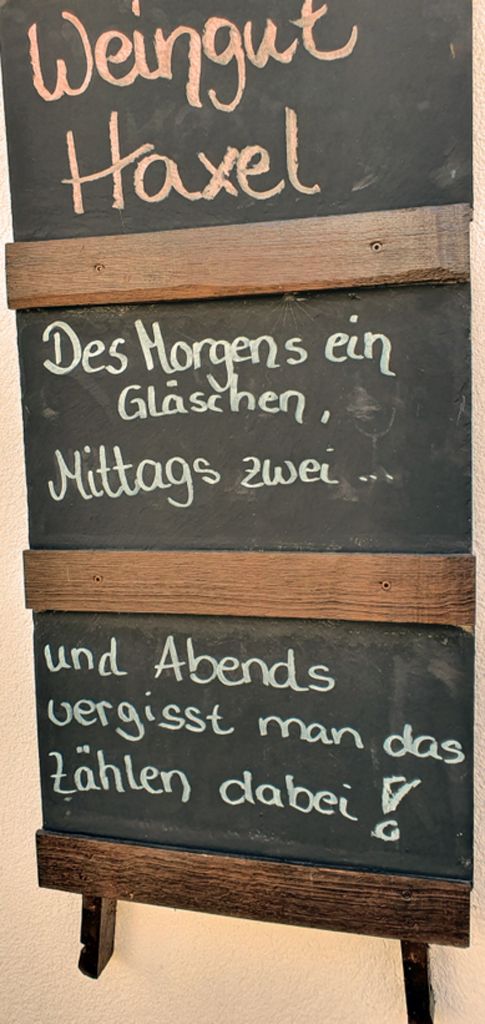 Weingut
Haxel
Des Morgens ein
Gläschen,
Mittags zwei ...
und Abends
vergisst man das
Zählen dabei!